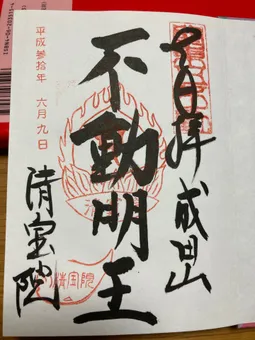 奉拝 成田山
不動明王
清宝院
平成参拾年 六月九日
清宝院